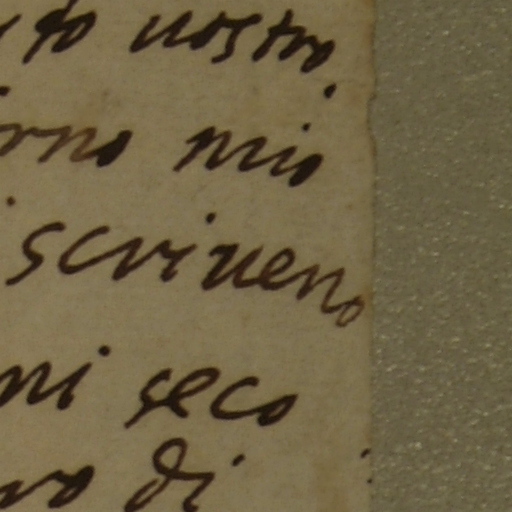 to nostro
rno mio
scriueno
ni seco
no di